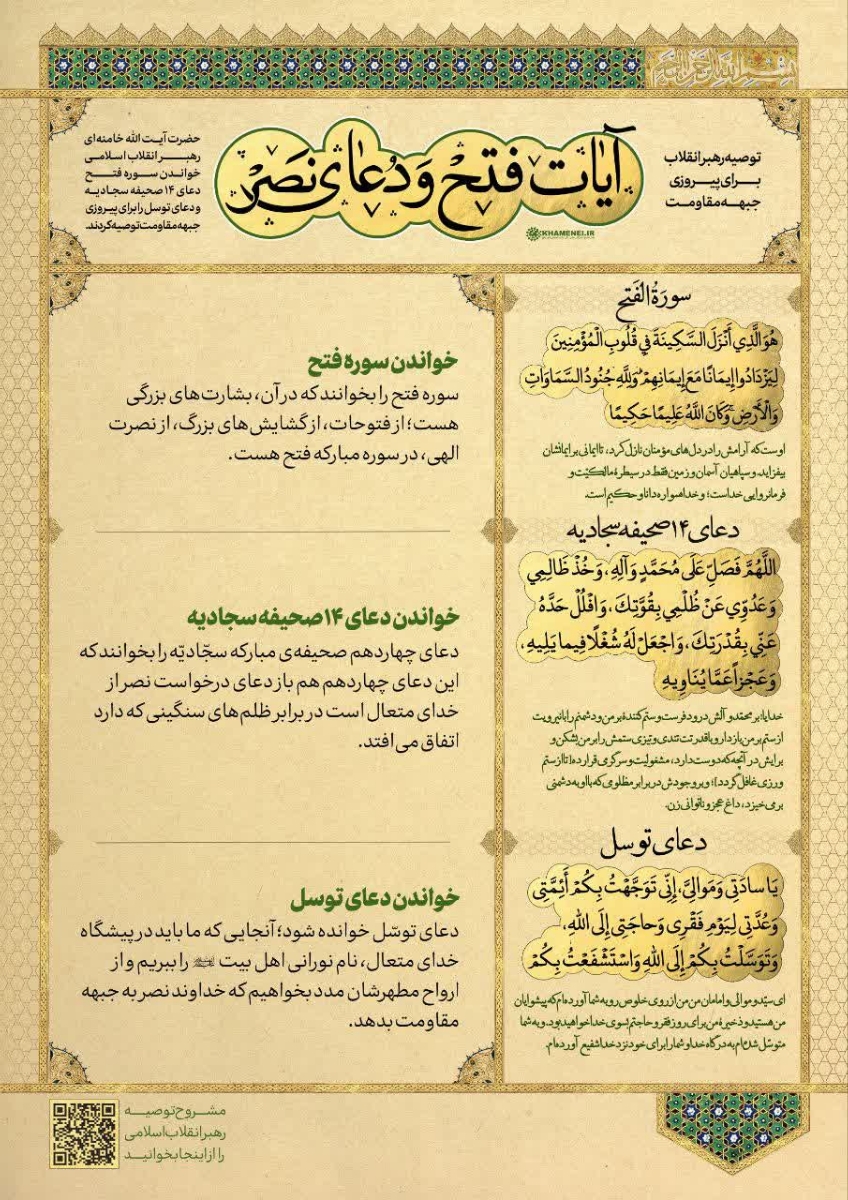 بسم الله الرحمن الرحیم
توصیه رهبر انقلاب
برای پیروزی
جبهه مقاومت
آیات فتح و دُعای نَصر
KHAMENEI.IR
حضرت آیت الله خامنه‌ای
رهبر انقلاب اسلامی
خواندن سوره فتح
دعای ۱۴ صحیفه سجادیه
و دعای توسل را برای پیروزی
جبهه مقاومت توصیه کردند.
سورَةُ الفَتح
هُوَ الَّذِي أَنْزَلَ السَّكِينَةَ فِي قُلُوبِ الْمُؤْمِنِينَ
لِيَزْدَادُوا إِيمَانًا مَعَ إِيمَانِهِمْ وَلِلَّهِ جُنُودُ السَّمَاوَاتِ
وَالْأَرْضِ وَكَانَ اللَّهُ عَلِيمًا حَكِيمًا
اوست که آرامش را در دل‌های مؤمنان نازل کرد، تا ایمانی بر ایمانشان
بیفزاید. و سپاهیان آسمان و زمین فقط در سیطرهٔ مالکیّت و
فرمانروایی خداست؛ و خدا همواره دانا و حکیم است.
دعای ۱۴ صحیفه سجادیه
اللَّهُمَّ فَصَلِّ عَلَى مُحَمَّدٍ وَآلِهِ، وَخُذْ ظَالِمِي
وَعَدُوِّي عَنْ ظُلْمِي بِقُوَّتِكَ، وَافْلُلْ حَدَّهُ
عَنِّي بِقُدْرَتِكَ، وَاجْعَلْ لَهُ شُغْلًا فِيما يَلِيهِ،
وَعَجْزاً عَمَّا يُنَاوِيهِ
خدایا! بر محمّد و آلش درود فرست و ستم‌کنندهٔ بر من و دشمنم را با نیرویت
از ستم بر من بازدار و با قدرتت تندی و تیزی ستمش را بر من بشکن و
برایش در آنچه که دوست دارد، مشغولیت و سرگرمی قرار ده [تا از ستم
ورزی غافل گردد]؛ و بر وجودش در برابر مظلومی که با او به دشمنی
برمی‌خیزد، داغ عجز و ناتوانی زن.
دعای توسل
يَا سادَتِي وَمَوالِيَّ، إِنِّي تَوَجَّهْتُ بِكُمْ أَئِمَّتِي
وَعُدَّتِي لِيَوْمِ فَقْرِي وَحاجَتِي إِلَى اللهِ،
وَتَوَسَّلْتُ بِكُمْ إِلَى اللهِ وَاسْتَشْفَعْتُ بِكُمْ
ای سیّد و موالی و امامان من من از روی خلوص رو به شما آورده‌ام که پیشوایان
من هستید و ذخیرهٔ من برای روز فقر و حاجتم بسوی خدا خواهید بود. و به شما
متوسّل شده‌ام به درگاه خدا و شما را برای خود نزد خدا شفیع آورده‌ام.
خواندن سوره فتح
سوره فتح را بخوانند که در آن، بشارت‌های بزرگی
هست؛ از فتوحات، از گشایش‌های بزرگ، از نصرت
الهی، در سوره مبارکه فتح هست.
خواندن دعای ۱۴ صحیفه سجادیه
دعای چهاردهم صحیفه‌ی مبارکه سجّادیّه را بخوانند که
این دعای چهاردهم هم باز دعای درخواست نصر از
خدای متعال است در برابر ظلم‌های سنگینی که دارد
اتفاق می‌افتد.
خواندن دعای توسل
دعای توسّل خوانده شود؛ آنجایی که ما باید در پیشگاه
خدای متعال، نام نورانی اهل بیت را ببریم و از
ارواح مطهرشان مدد بخواهیم که خداوند نصر به جبهه
مقاومت بدهد.
مشروح توصیه
رهبر انقلاب اسلامی
را از اینجا بخوانید